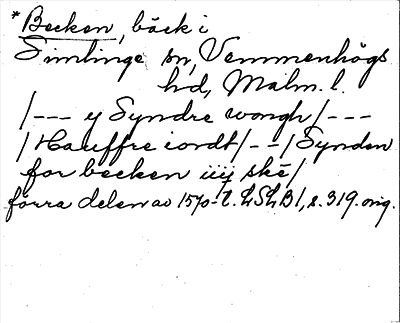 *Becken, bäck i
Simlinge sn, Vemmenhögs
hd, Malm. l.
/--- y Syndre wongh/---
/Hauffre iordt/--/Synden
for becken iiij ske/
förra delen av 1570-t. LSLB1, s. 319. orig.